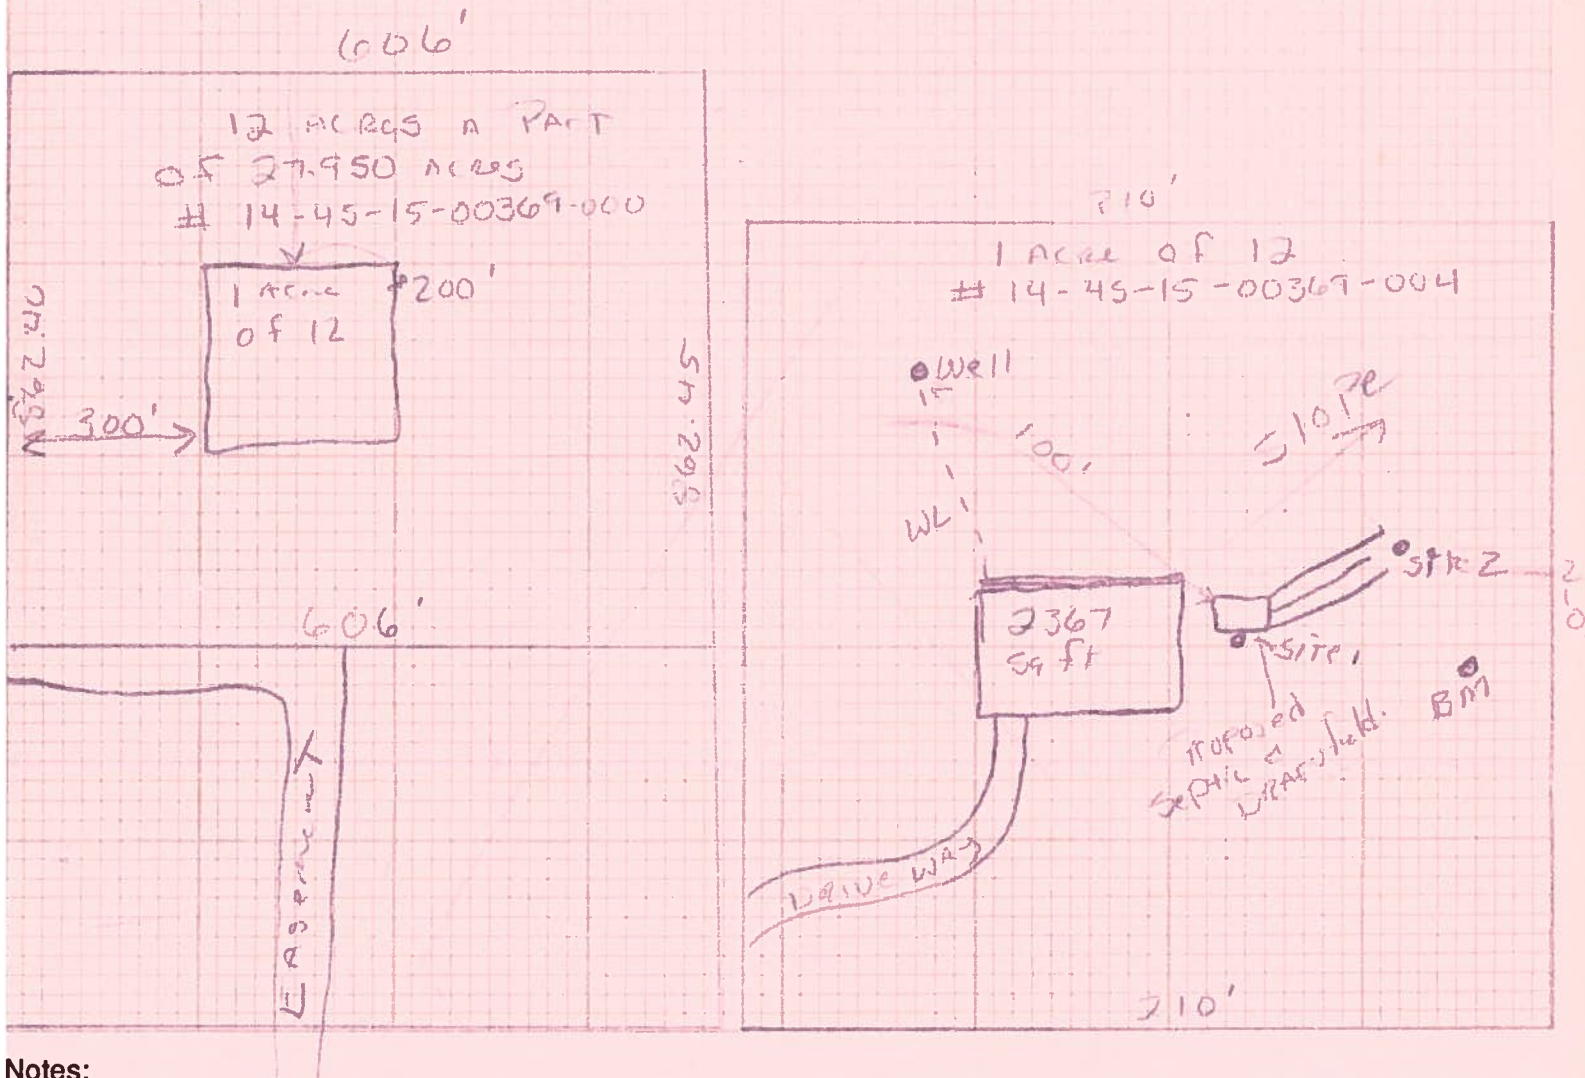 606'
12 ACRES A PART
OF 27.950 ACRES
# 14-45-15-00369-000
1 Acre
of 12
200'
862.40
300'
862.45
606'
EASEMENT
210'
1 Acre of 12
# 14-45-15-00369-004
Well
100'
Slope
WL
2367
Sq ft
Site 2
210
Site 1
BM
Proposed
Septic &
DRAINfield.
DRIVE WAY
210'
Notes: